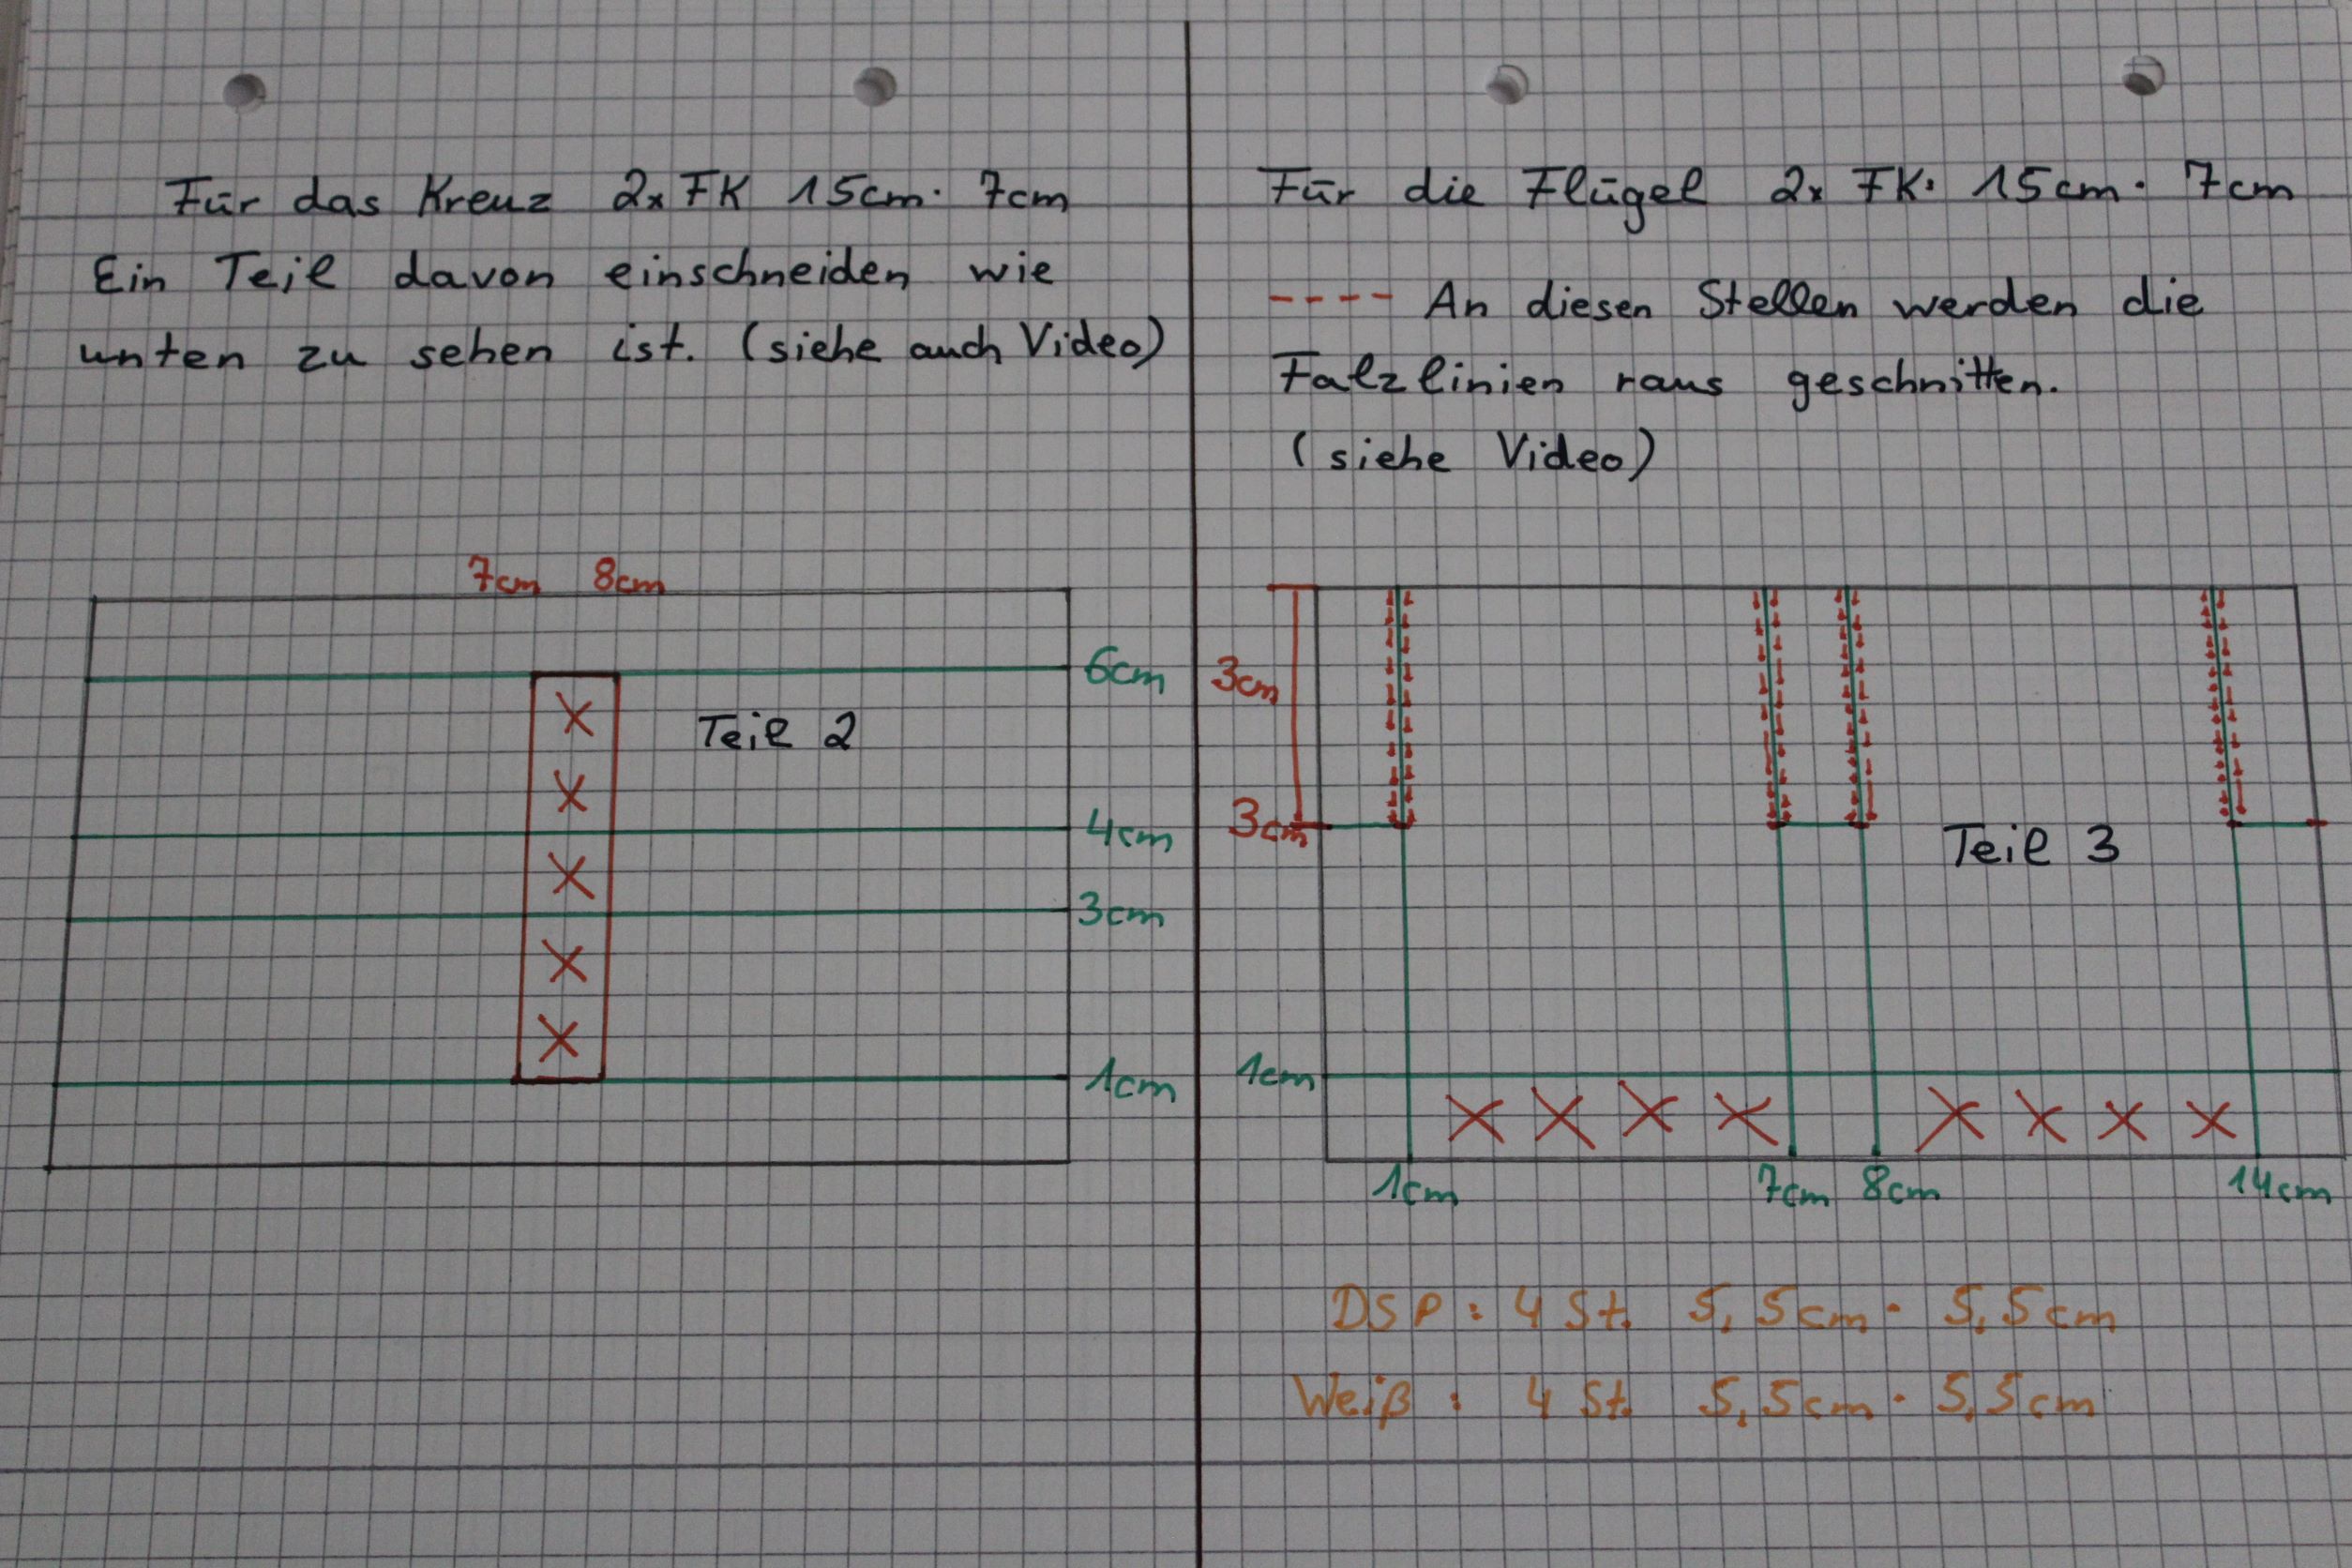 Für das Kreuz 2x FK 15cm · 7cm
Ein Teil davon einschneiden wie
unten zu sehen ist. (siehe auch Video)
7cm 8cm
6cm
Teil 2
4cm
3cm
1cm
Für die Flügel 2x FK· 15cm · 7cm
---- An diesen Stellen werden die
Falzlinien raus geschnitten.
(siehe Video)
3cm
3cm
Teil 3
1cm
1cm 7cm 8cm 14cm
DSP: 4 St. 5,5cm · 5,5cm
Weiß: 4 St. 5,5cm · 5,5cm